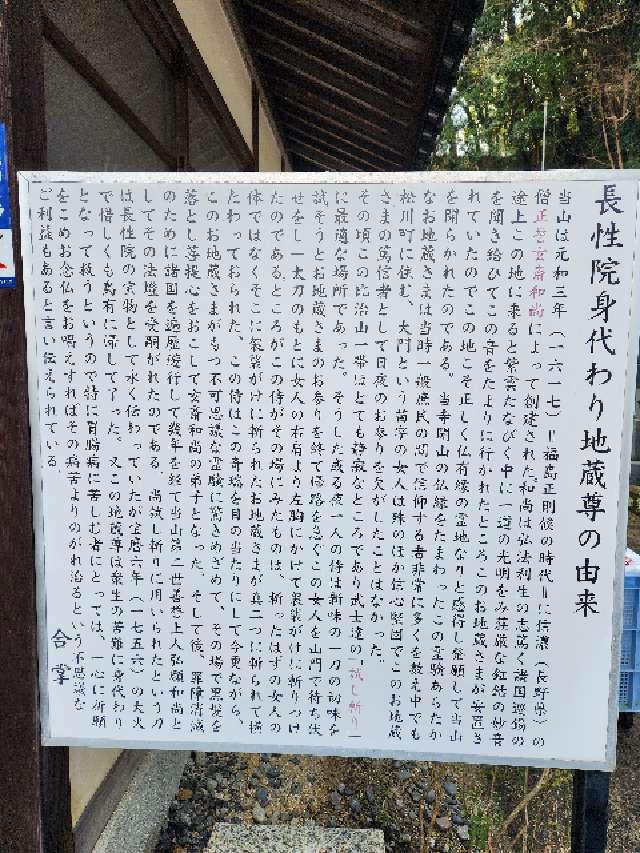 長性院身代わり地蔵尊の由来
当山は元和三年(一六一七)=福島正則候の時代=に信濃(長野県)の
僧正誉玄斎和尚によって創建された。和尚は弘法利生の志篤く諸国遍錫の
途上この地に来ると紫雲たなびく中に一道の光明をみ荘厳な鉦鼓の妙音
を聞き給ひてこの音をたよりに行かれたところこのお地蔵さまが安置さ
れていたのでこの地こそ正しく仏有縁の霊地なりと感得し発願して当山
を開らかれたのである。当寺開山の仏縁をたまわったこの霊験あらたか
なお地蔵さまは当時一般庶民の間で信仰する者非常に多くを数え中でも
松川町に住む、大門という苗字の女人は殊のほか信心堅固でこのお地蔵
さまの篤信者として日夜のお参りを欠かしたことはなかった。
その頃この比治山一帯はとても静寂なところであり武士達の「試し斬り」
に最適な場所であった。そうした或る夜一人の侍は新味の一刀の切味を
試そうとお地蔵さまのお参りを終て帰路を急ぐこの女人を山門で待ち伏
せをし一太刀のもとに女人の右肩より左胸にかけて袈裟がけに斬りつけ
たのである。ところがこの侍がその場にみたものは、斬ったはずの女人の
体ではなくそこに袈裟がけに斬られたお地蔵さまが真二つに斬られて横
たわっておられた。この侍はこの奇瑞を目の当たりにして今更ながら、
このお地蔵さまがもつ不可思議な霊験に驚きめざめて、その場で黒髪を
落とし菩提心をおこして玄斎和尚の弟子となった。そして後、罪障消滅
のために諸国を遍歴修行して幾年を経て当山第二世善誉上人弘願和尚と
してその法燈を受嗣がれたのである。尚試し斬りに用いられたという刀
は長性院の宝物として永く伝わっていたが宝暦六年(一七五六)の大火
で惜しくも烏有に帰して了った。又この地蔵尊は衆生の苦難に身代わり
となって救うというので特に胃腸病に苦しむ者にとっては、一心に祈願
をこめお念仏をお唱えすればその病苦よりのがれ治るという不思議な
ご利益もあると言い伝えられている。
合掌